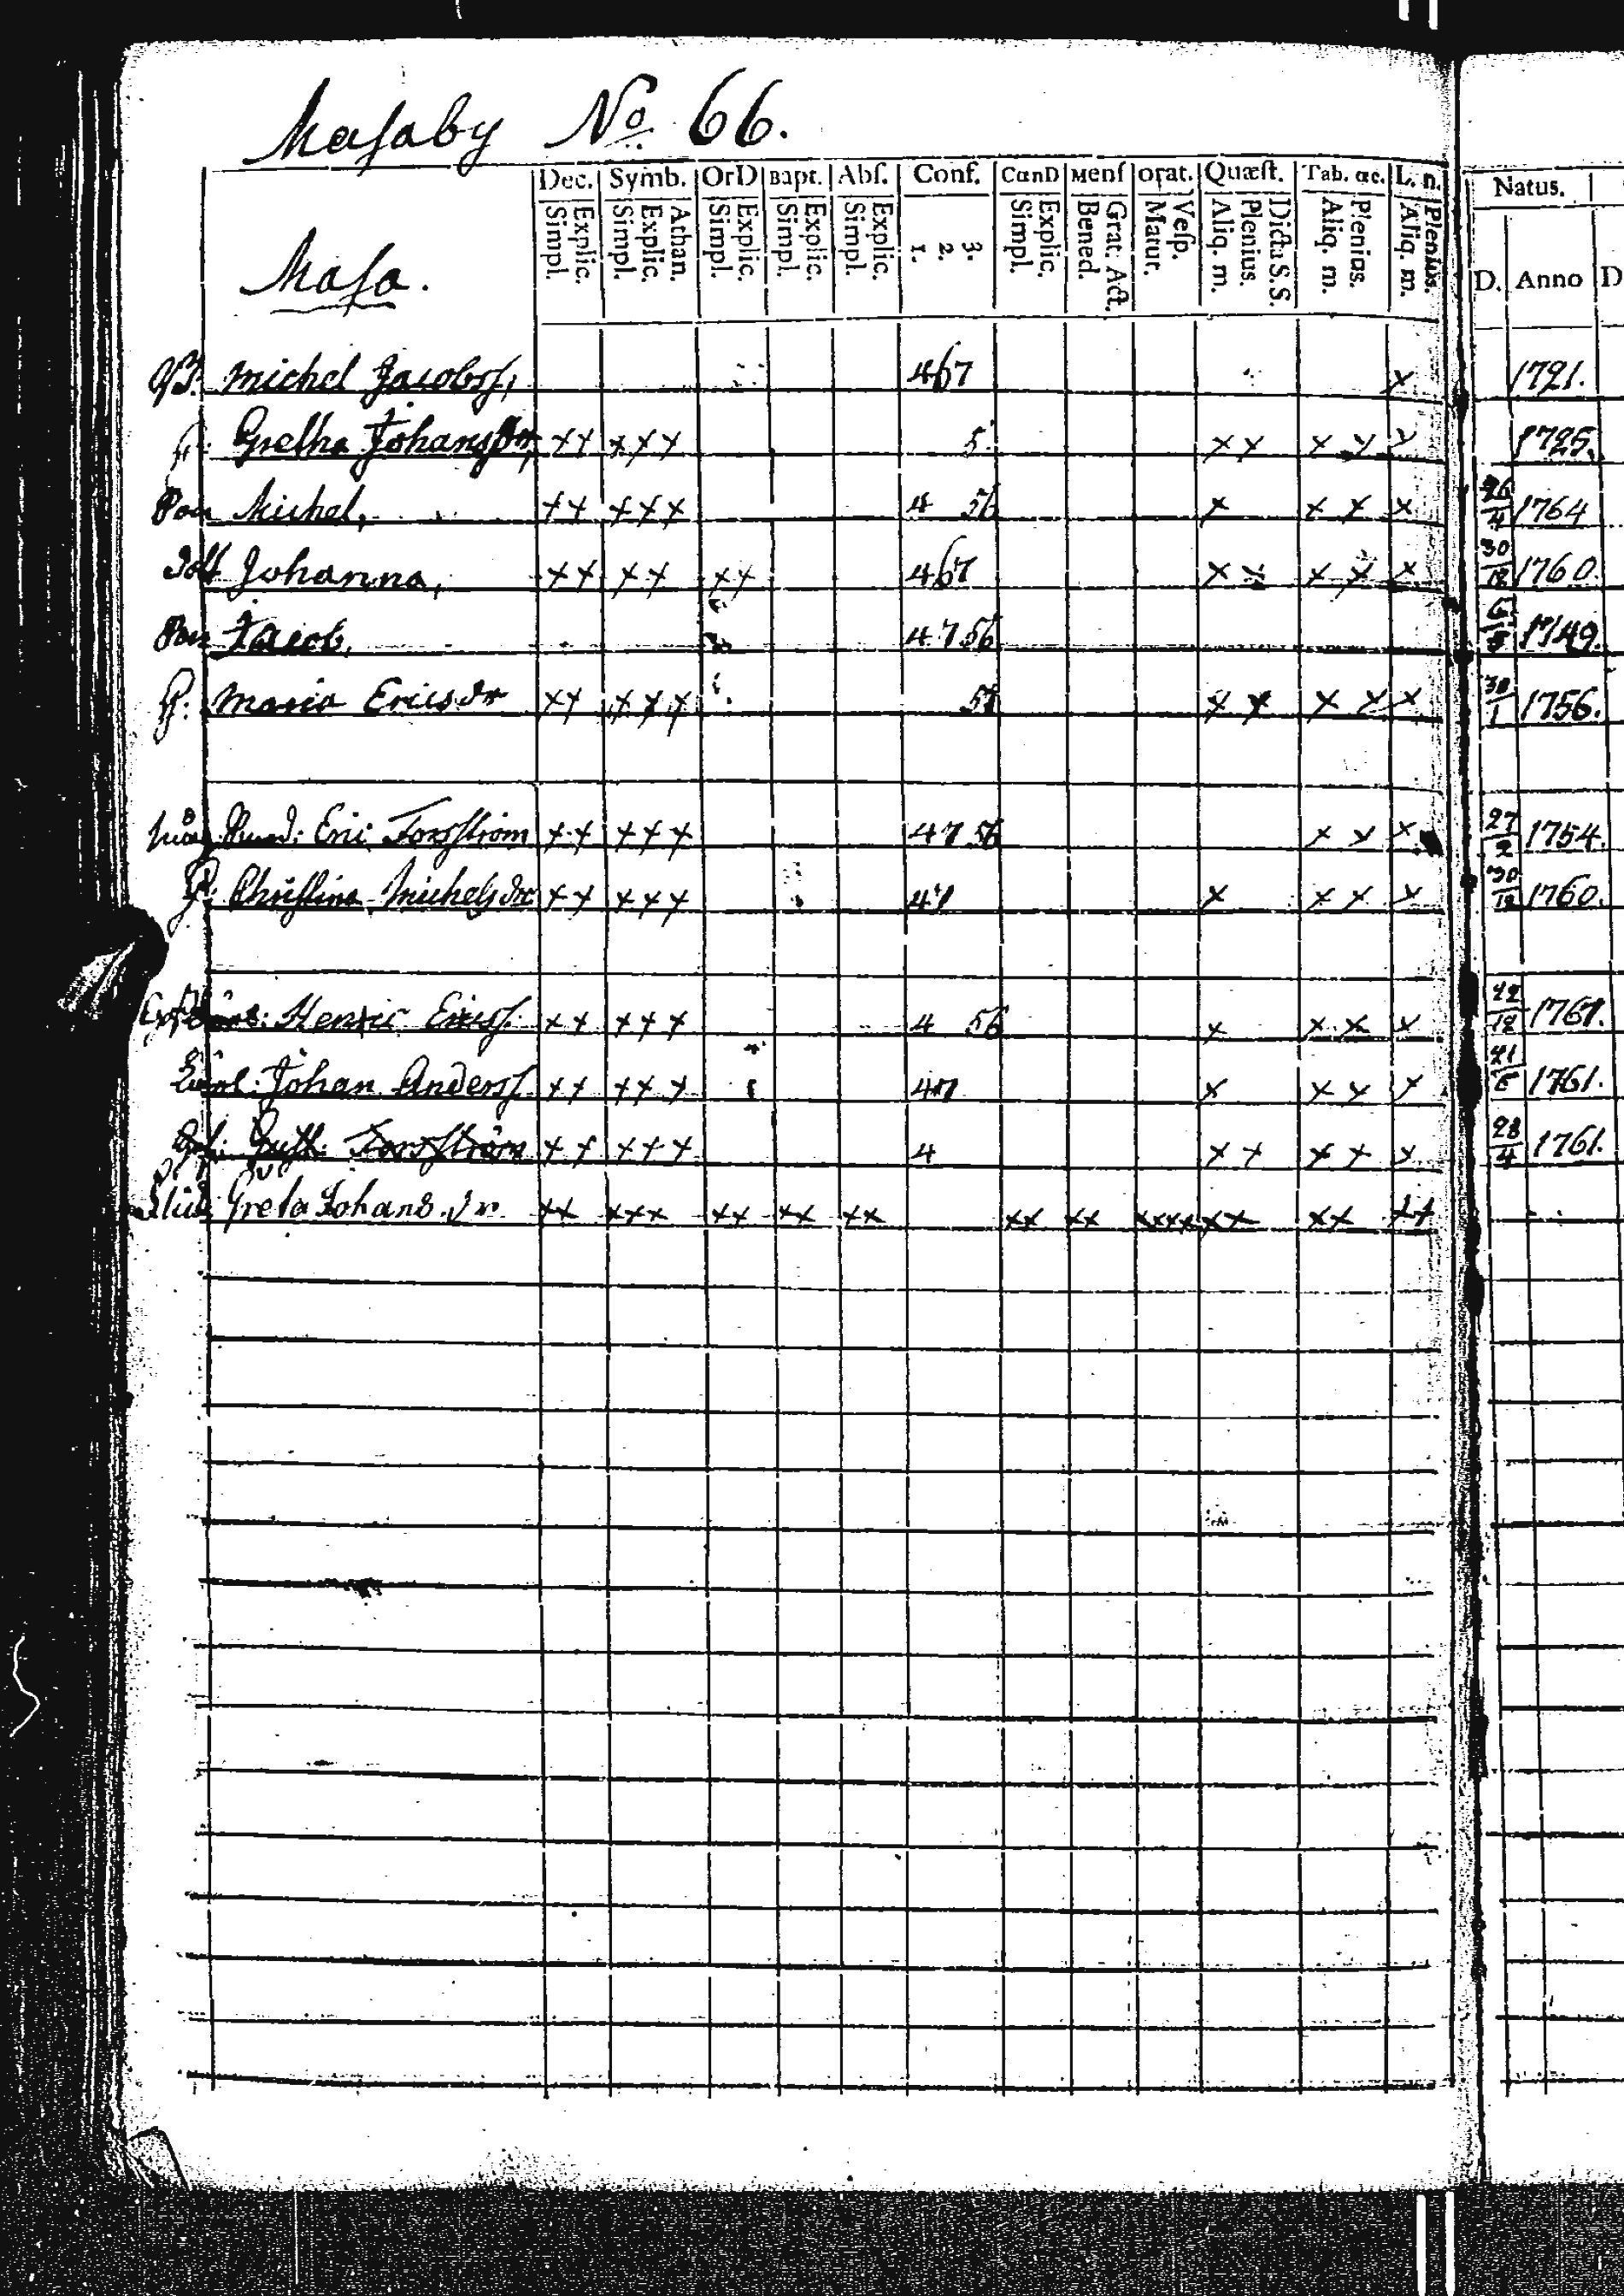 Masaby No 66.
Dec. Symb. OrD Bapt. Abſ. Conf. CanD Menſ orat. Quæſt. Tab. œc. L. n. Natus.
Simpl. Explic. Simpl. Explic. Athan. Simpl. Explic. Simpl. Explic. Simpl. Explic. 1. 2. 3. Simpl. Explic. Bened. Grat: Act. Matur. Veſp. Aliq. m. Plenius. Dicta S. S. Aliq. m. Plenius. Aliq. m. Plenius. D. Anno D
Masa.
Michel Jacobsſ, 467 x 1721.
Gretha Johansdr, xx xxx 5 xx x x x 1725.
Son Michel, xx xxx 4 56 x x x x 26/4 1764
Johanna, xx xx xx 467 x x x x x 30/12 1760.
Son Jacob, 47 56 1749.
Maria Ericsdr xx xxx x x x x x 30/1 1756.
Eric Forsström xx xxx 47 56 x x x 27/2 1754.
Christina Michelsdr xx xxx x x x x 30/12 1760.
Henric Ericsſ. xx xxx 4 56 x x x x 22/12
Johan Andersſ. xx xxx x x x x 1761.
Gust: Forsström xx xxx 4 x x x x x 28/4 1761.
Greta Johans.dr xx xxx xx xx xx xx xx xxxx xx xx